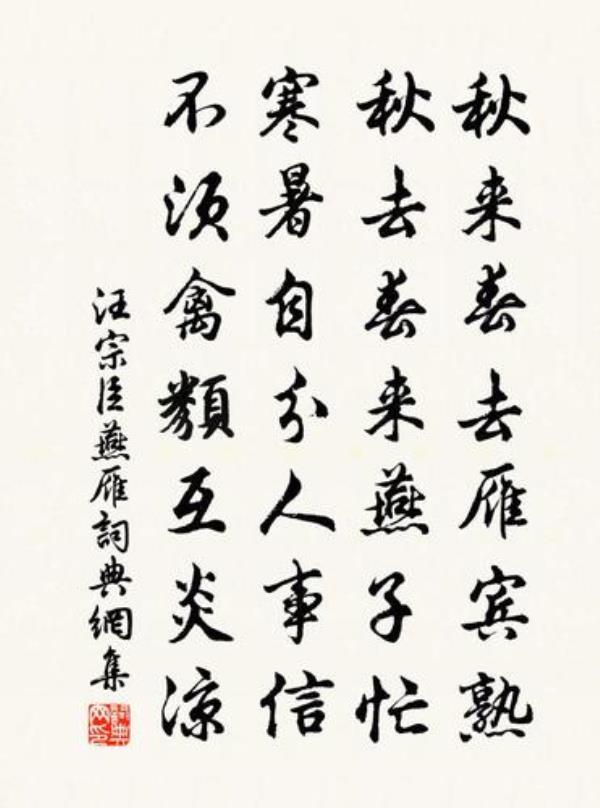 秋来春去雁宾熟
秋去春来燕子忙
寒暑自分人事信
不须禽類互炎凉
汪宗臣燕雁詞典網集